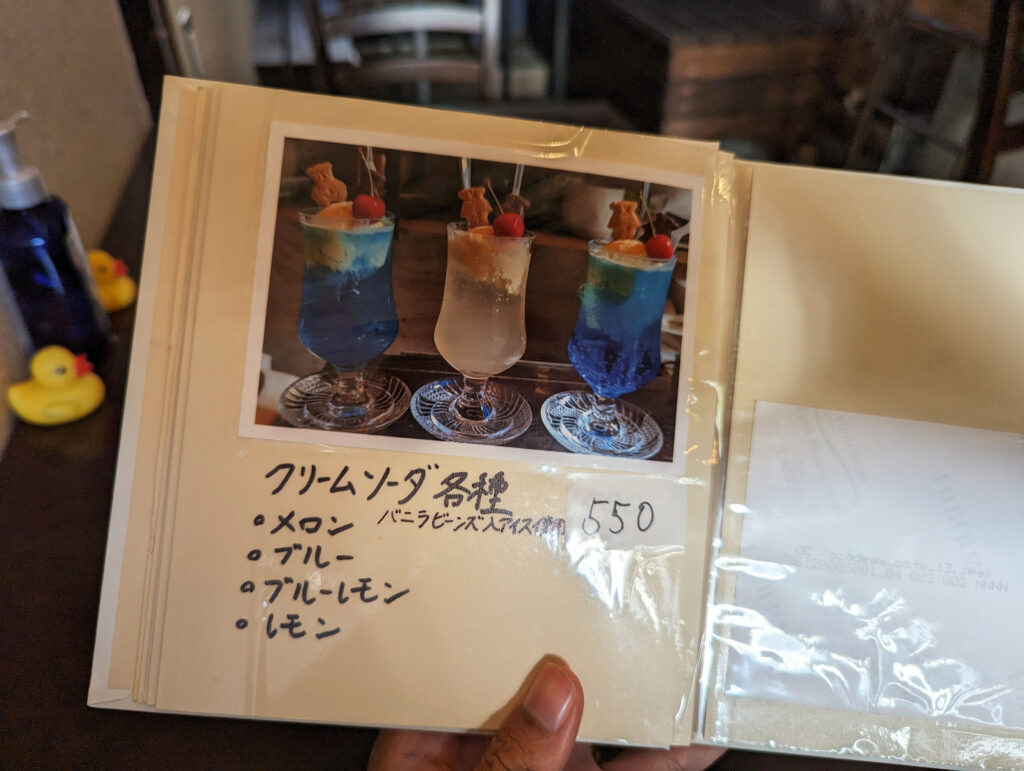 クリームソーダ各種
バニラビーンズ入アイス使用
550
• メロン
• ブルー
• ブルーレモン
• レモン
FUJIFILM